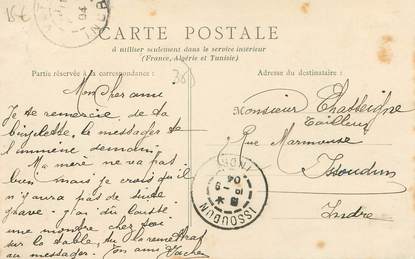 15€
CARTE POSTALE
à utiliser seulement dans le service intérieur
(France, Algérie et Tunisie)
Partie réservée à la correspondance :
Adresse du destinataire :
38
Mon cher ami
Je te remercie de ta
bicyclette, le messager te
l'ammène demain.
Ma mère ne va pas
bien mais je crois qu'il
n'y aura pas de suite
grave. J'ai dû laisser
une montre chez toi
sur la table, tu la remettras
au messager. Ton ami
Monsieur Chasteigne
Tailleur
Rue Marmouse
Issoudun
Indre
ISSOUDUN
INDRE
04